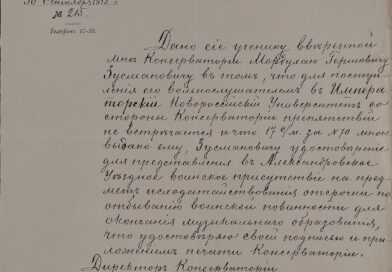 10 Сентября 1913 г.
№ 215.
Телефонъ 17-20.
Дано сіе ученику ввѣренной
мнѣ Консерваторіи Мордулаю Гершовичу
Зусмановичу въ томъ, что для поступ
ленія его вольнослушателемъ въ Импера
торскій Новороссійскій Университетъ со
стороны Консерваторіи препятствій
не встрѣчается и что 17 с/м. за № 70 мною
выдано ему, Зусмановичу удостовѣреніе
для представленія въ Александровское
Уѣздное воинское присутствіе на пред
метъ исходатайствованія отсрочки по
отбыванію воинской повинности для
окончанія музыкальнаго образованія,
что удостовѣряю своей подписью и при
ложеніемъ печати Консерваторіи.
Директоръ Консерваторіи